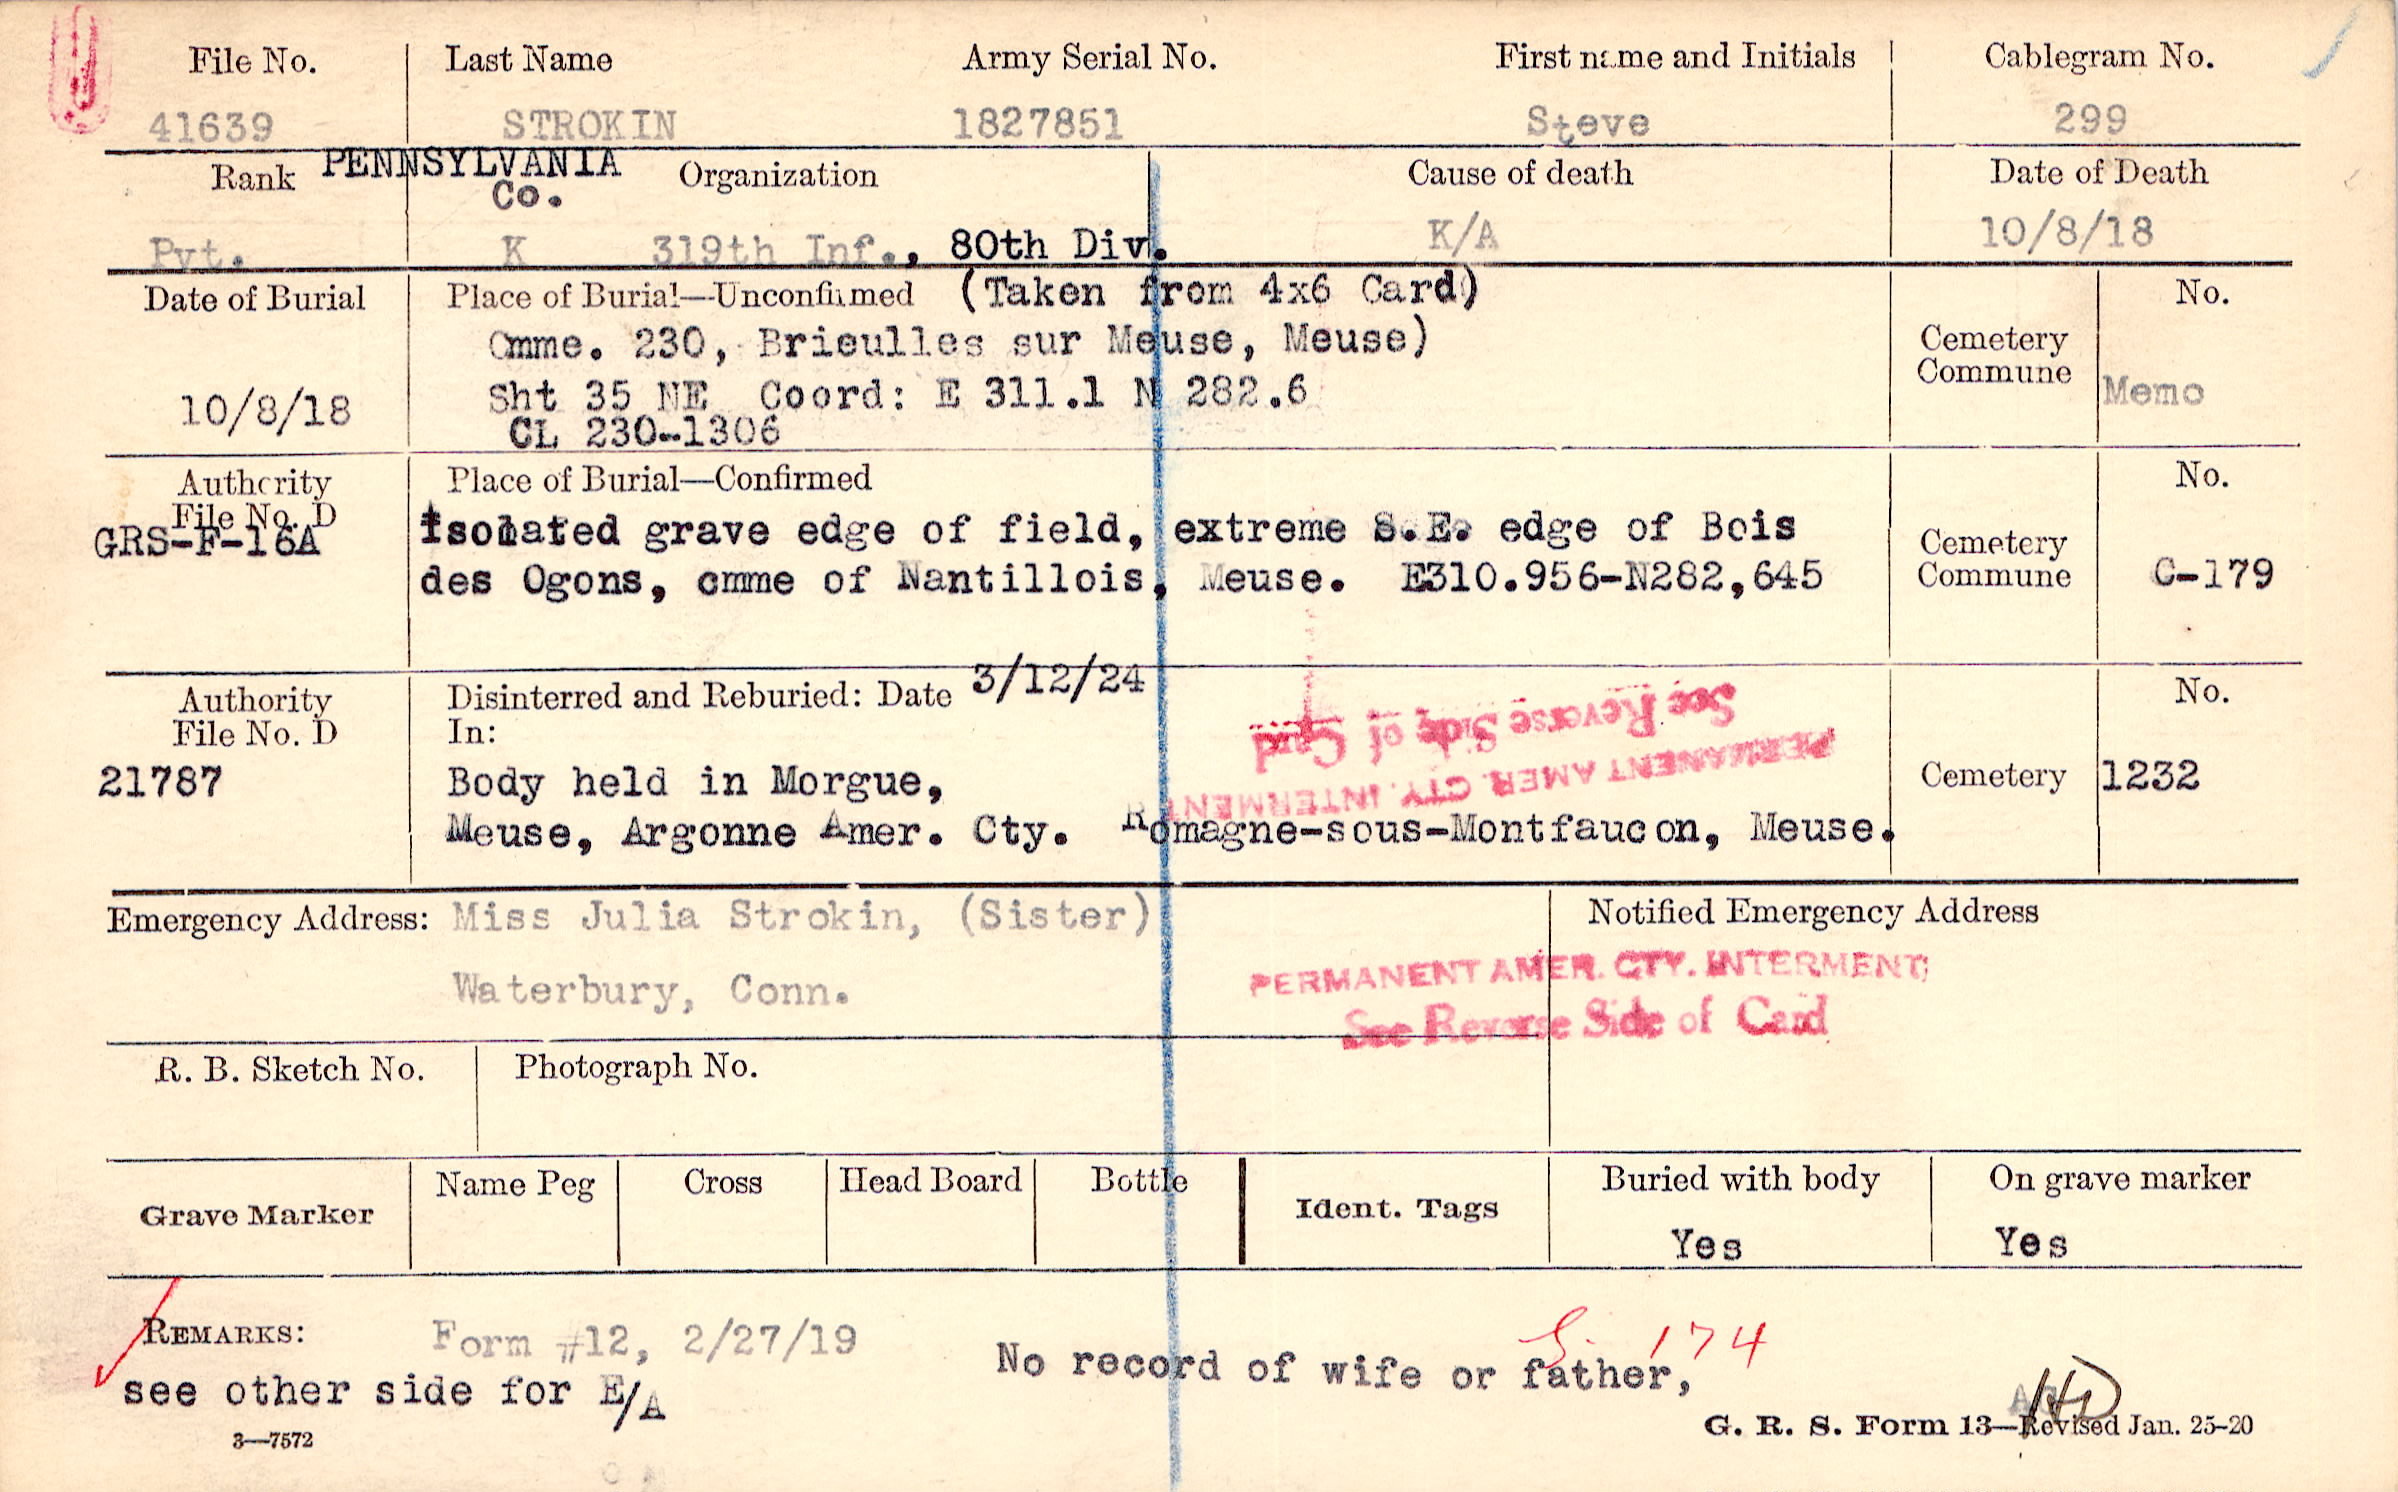 File No. Last Name Army Serial No. First name and Initials Cablegram No.
41639 STROKIN 1827851 Steve 299
Rank PENNSYLVANIA Organization Cause of death Date of Death
Co.
Pvt. K 319th Inf., 80th Div. K/A 10/8/18
Date of Burial Place of Burial—Unconfirmed (Taken from 4x6 Card) No.
Cmme. 230, Brieulles sur Meuse, Meuse) Cemetery
Commune Memo
10/8/18 Sht 35 NE Coord: E 311.1 N 282.6
CL 230-1306
Authority Place of Burial—Confirmed No.
File No. D
GRS-F-16A Isolated grave edge of field, extreme S.E. edge of Bois Cemetery
des Ogons, cmme of Nantillois, Meuse. E310.956-N282,645 Commune C-179
Authority Disinterred and Reburied: Date 3/12/24 No.
File No. D In:
See Reverse Side of Card
PERMANENT AMER. CTY. INTERMENT
21787 Body held in Morgue, Cemetery 1232
Meuse, Argonne Amer. Cty. Romagne-sous-Montfaucon, Meuse.
Emergency Address: Miss Julia Strokin, (Sister) Notified Emergency Address
Waterbury, Conn.
PERMANENT AMER. CTY. INTERMENT
See Reverse Side of Card
R. B. Sketch No. Photograph No.
Grave Marker Name Peg Cross Head Board Bottle Ident. Tags Buried with body On grave marker
Yes Yes
REMARKS: Form #12, 2/27/19 No record of wife or father, G. 174
see other side for E/A
3—7572 G. R. S. Form 13—Revised Jan. 25-20